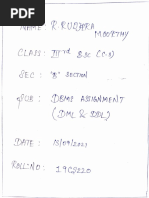 NAME: R. RUDHRA
MOORTHY
CLASS: IIIrd B.SC (C.N)
SEC : "B" SECTION
SUB : DBMS ASSIGNMENT
(DML & DDL)
DATE : 15/09/2021
ROLL.NO : 19CS220